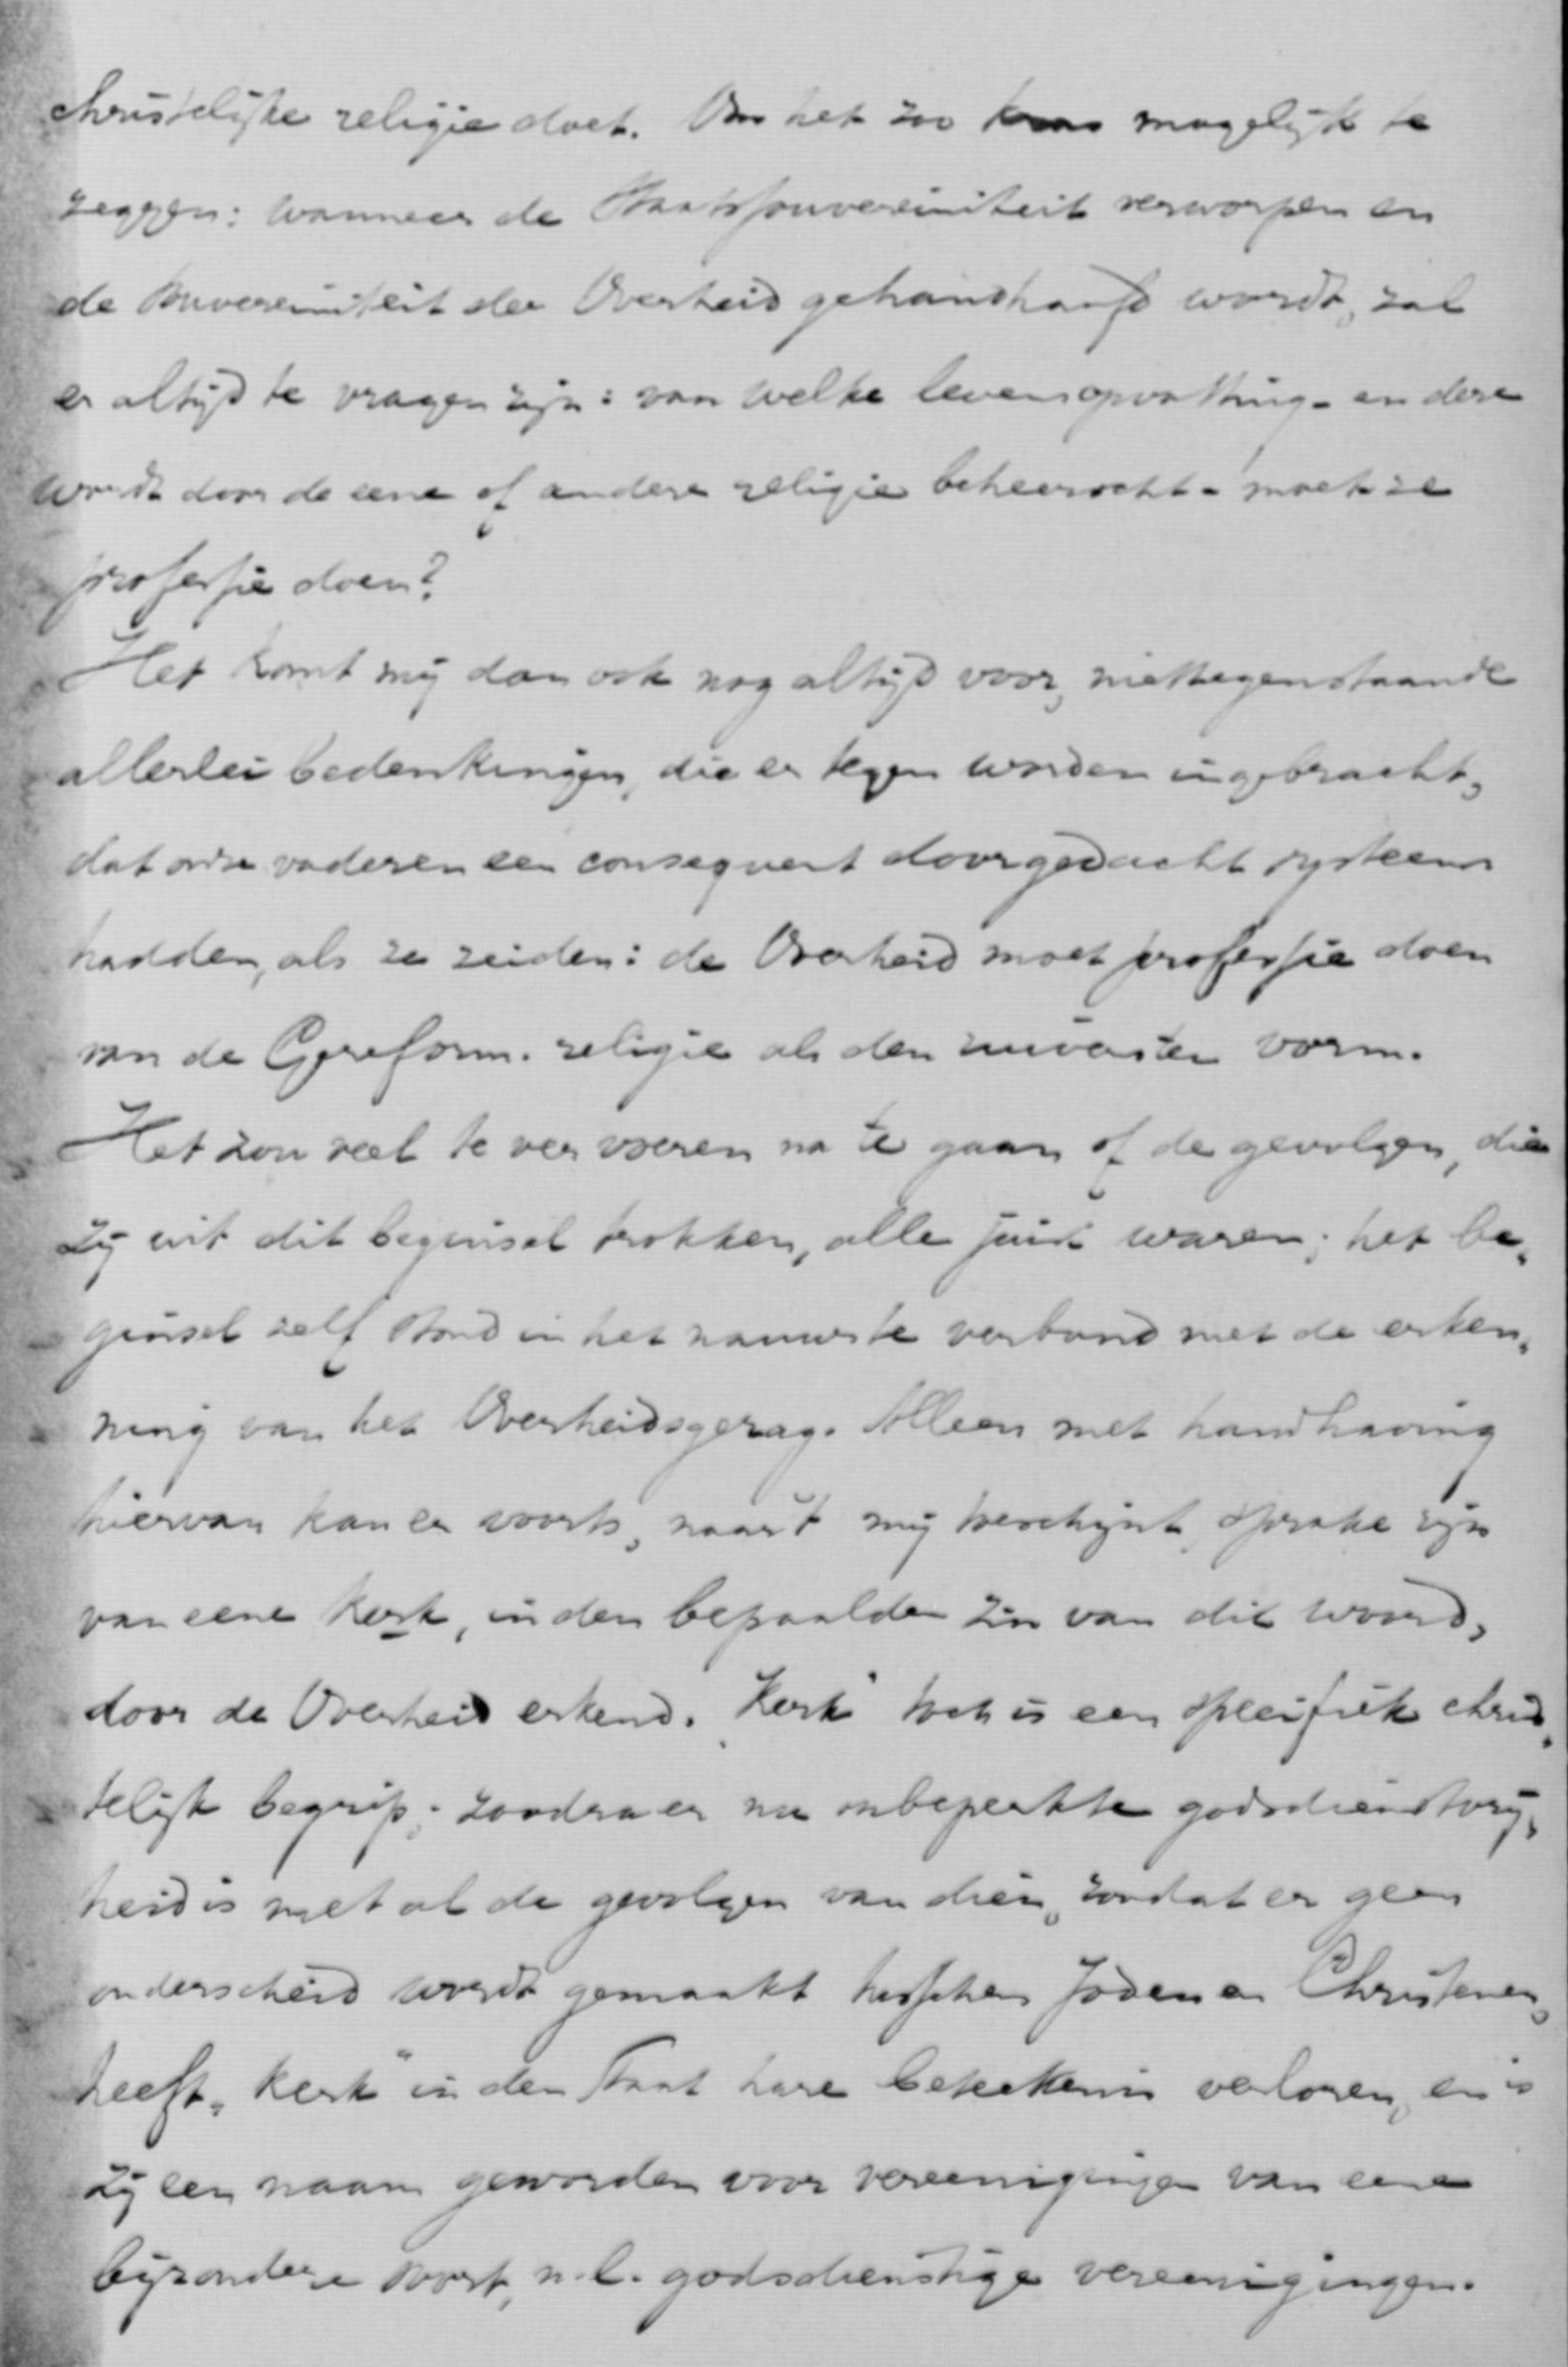 christelijke religie doet. Om het zoo mogelijk te
zeggen: wanneer de Staatssouvereiniteit verworpen en
de souvereiniteit der Overheid gehandhaafd wordt, zal
er altijd te vragen zijn: van welke levensopvatting - en deze
wordt door de eene of andere religie beheerscht - moet ze
professie doen?
Het komt mij dan ook nog altijd voor, niettegenstaande
allerlei bedenkingen, die er tegen worden ingebracht,
dat onze vaderen een consequent doorgedacht systeem
hadden, als ze zeiden: de Overheid moet professie doen
van de Gereform. religie als den zuiversten vorm.
Het zou veel te ver voeren na te gaan of de gevolgen, die
zij uit dit beginsel trokken, alle juist waren; het be„
ginsel zelf stond in het nauwste verband met de erken„
ning van het Overheidsgezag. Alleen met handhaving
hiervan kan er voorts, naar 't mij toeschijnt, sprake zijn
van eene kerk, in den bepaalden zin van dit woord,
door de Overheid erkend. „Kerk" toch is een specifiek chris„
telijk begrip; zoodra er nu onbeperkte godsdienstvrij„
heid is met al de gevolgen van dien, zoodat er geen
onderscheid wordt gemaakt tusschen Joden en Christenen,
heeft „kerk" in den Staat hare beteekenis verloren, en is
zij een naam geworden voor vereenigingen van eene
bijzondere soort, n.l. godsdienstige vereenigingen.